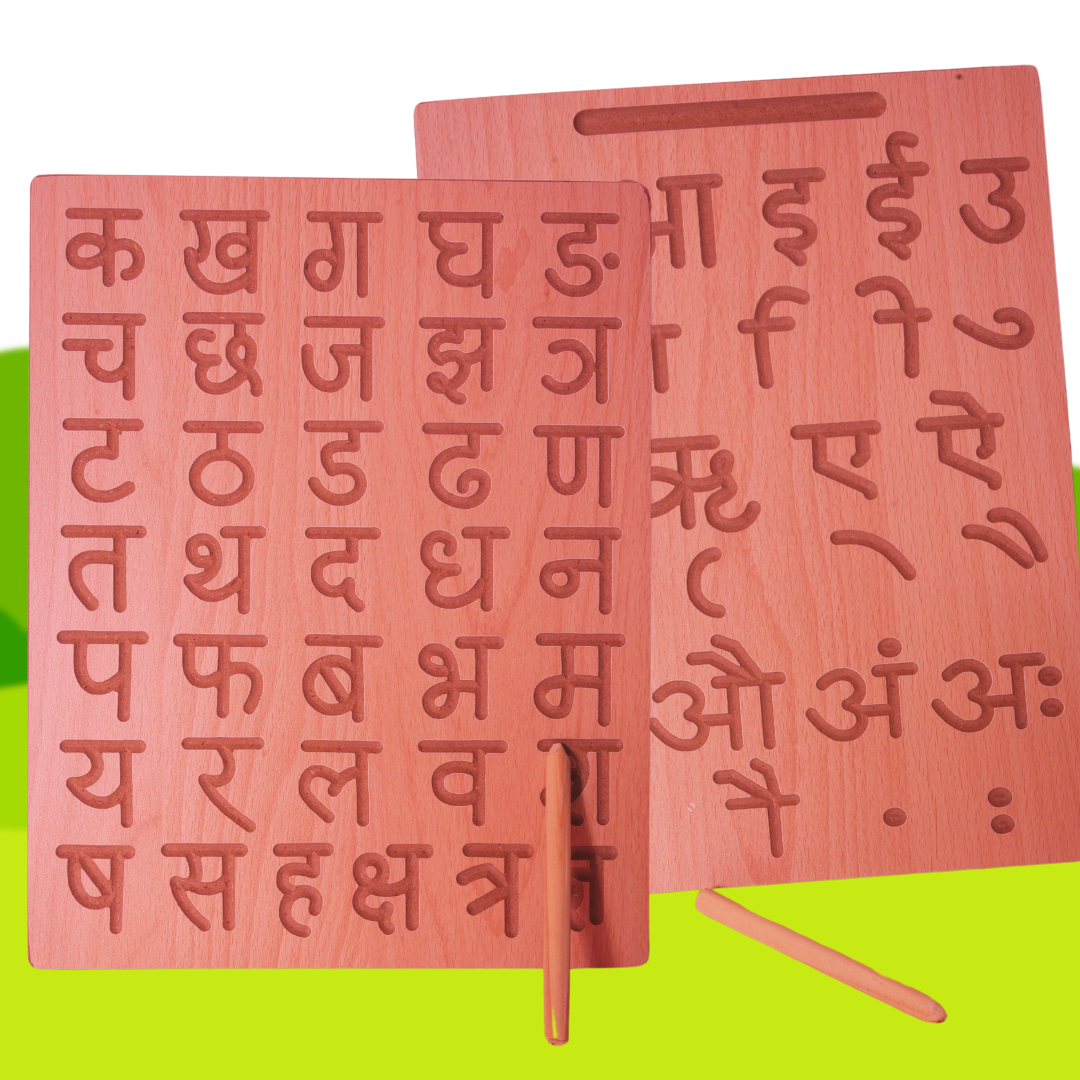 क ख ग घ ङ
च छ ज झ ञ
ट ठ ड ढ ण
त थ द ध न
प फ ब भ म
य र ल व श
ष स ह क्ष त्र
आ इ ई उ
ा ि ी ु
ऋ ए ऐ
ृ े ै
औ अं अः
ौ ं ः